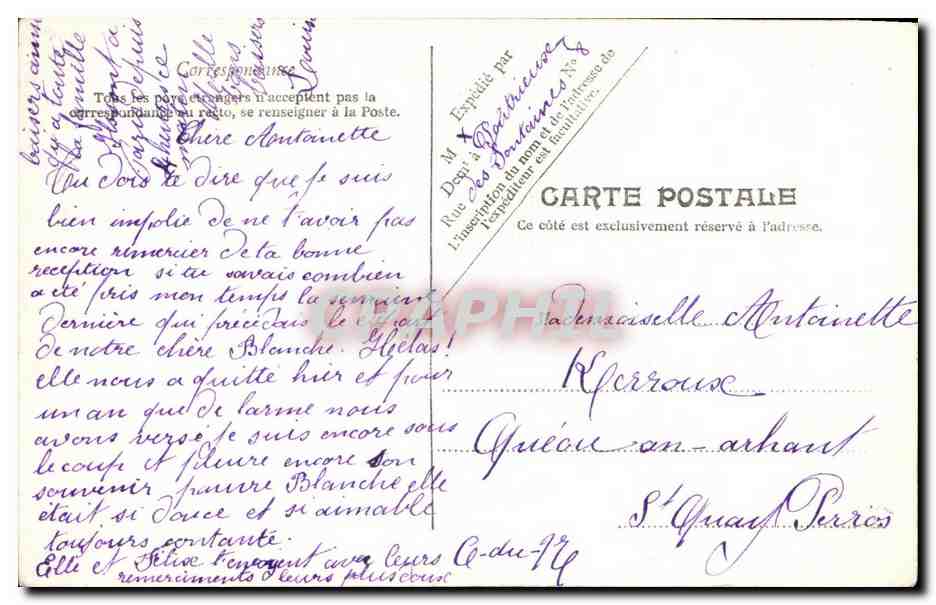 Correspondance
Tous les pays étrangers n'acceptent pas la
correspondance au recto, se renseigner à la Poste.
Chère Antoinette
Tu dois te dire que je suis
bien impolie de ne t'avoir pas
encore remercier de ta bonne
reception si tu savais combien
a été pris mon temps la semaine
dernière qui précédais le départ
de notre chère Blanche. Hélas!
elle nous a quitté hier et pour
un an que de larme nous
avons versé je suis encore sous
le coup et pleure encore son
souvenir pauvre Blanche elle
était si douce et si aimable
toujours contante.
Elle et Félix t'envoyent avec leurs
remerciments leurs plus doux
baisers ainsi
qu'a toute
la famille
Expédié par
M
Dem^t à
Rue des Fontaines N^o
L'inscription du nom et de l'adresse de
l'expéditeur est facultative.
CARTE POSTALE
Ce côté est exclusivement réservé à l'adresse.
CRAPHIL
Mademoiselle Antoinette
Kerroux
an-arhant
S^t Quay Perros
C-du-N